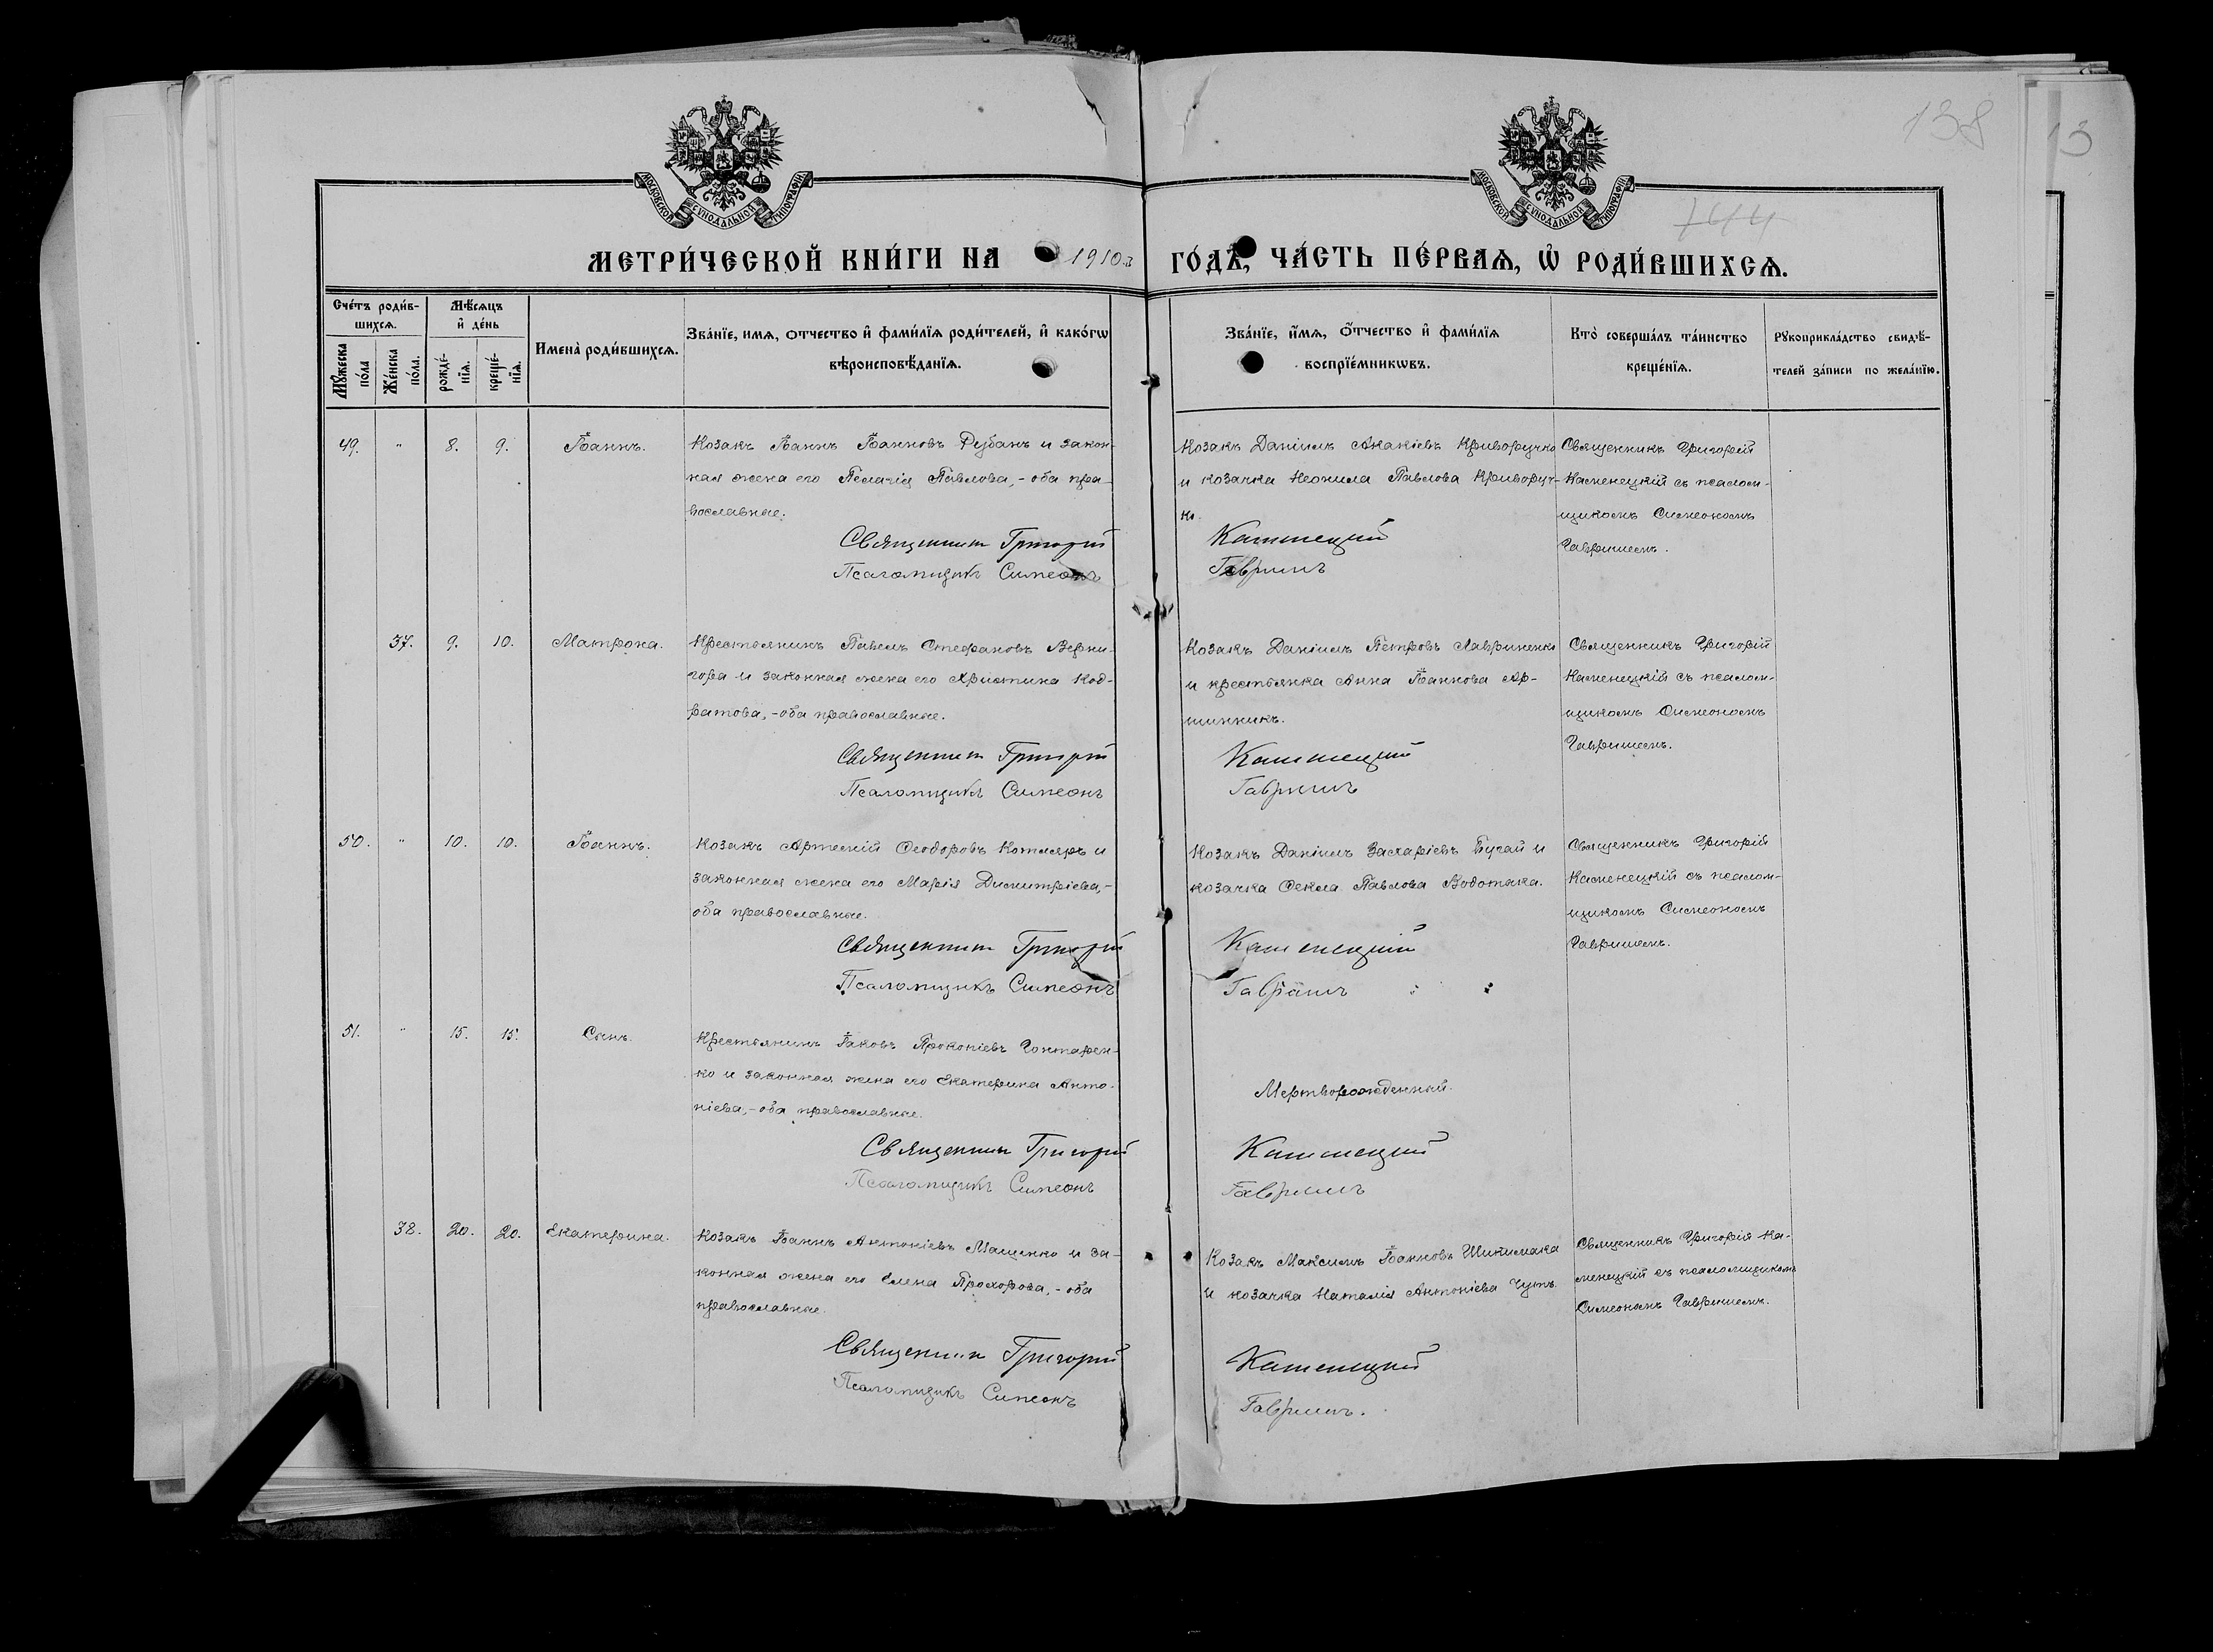 138
13
744
МОСКОВСКОЙ СѴНОДАЛЬНОЙ ТИПОГРАФІИ
МОСКОВСКОЙ СѴНОДАЛЬНОЙ ТИПОГРАФІИ
МЕТРИ́ЧЕСКОЙ КНИ́ГИ НА 1910й ГО́ДЪ, ЧА́СТЬ ПЕ́РВАѦ, Ѡ҆ РОДИ́ВШИХСѦ.
Сче́тъ роди́в-
шихсѧ.
Мꙋ́жеска по́ла
Же́нска по́ла.
Мѣ́сѧцъ
и҆ де́нь
рожде́-
нїѧ.
креще́-
нїѧ.
Имена̀ роди́вшихсѧ.
Зва́нїе, имѧ, отчество и҆ фами́лїѧ роди́телей, и҆ како́гѡ
вѣроисповѣ́данїѧ.
Зва́нїе, и҆́мѧ, о҆́тчество и҆ фами́лїѧ
воспрїе́мникѡвъ.
Кто̀ соверша́лъ та́инство
креще́нїѧ.
Рꙋкоприкла́дство свидѣ́-
телей за́писи по жела́нїю.
49. " 8. 9. Іоаннъ.
Козакъ Іоаннъ Іоанновъ Рубанъ и закон-
ная жена его Пелагія Павлова,- оба пра-
вославные.
Священник Григорій
Псаломщикъ Симеонъ
Козакъ Даніилъ Акакіевъ Криворучко
и козачка Неонила Павлова Криворуч-
ко.
Каменецкий
Гавришъ
Священникъ Григорій
Каменецкій съ псалом-
щикомъ Симеономъ
Гавришемъ.
37. 9. 10. Матрона.
Крестьянинъ Павелъ Стефановъ Верни-
гора и законная жена его Христина Код-
ратова,-оба православные.
Священник Григорій
Псаломщикъ Симеонъ
Козакъ Даніилъ Петровъ Лавриненко
и крестьянка Анна Іоаннова Ар-
шинникъ.
Каменецкий
Гавришъ
Священникъ Григорій
Каменецкій съ псалом-
щикомъ Симеономъ
Гавришемъ.
50. " 10. 10. Іоаннъ.
Козакъ Артемій Ѳеодоровъ Котляръ и
законная жена его Марія Димитріева,-
оба православные.
Священник Григорій
Псаломщикъ Симеонъ
Козакъ Даніилъ Захаріевъ Бугай и
козачка Ѳекла Павлова Водотяка.
Каменецкий
Гавришъ
Священникъ Григорій
Каменецкій съ псалом-
щикомъ Симеономъ
Гавришемъ.
51. " 15. 15. Сынъ.
Крестьянинъ Іаковъ Прокопіевъ Гонтарен-
ко и законная жена его Екатерина Анто-
ніева,-оба православные.
Священник Григорій
Псаломщикъ Симеонъ
Мертворожденный.
Каменецкий
Гавришъ
38. 20. 20. Екатерина.
Козакъ Іоаннъ Антоніевъ Мащенко и за-
конная жена его Елена Прохорова,- оба
православные.
Священник Григорий
Псаломщикъ Симеонъ
Козакъ Максимъ Іоанновъ Шикимака
и козачка Наталія Антоніева Чутъ.
Каменецкий
Гавришъ.
Священникъ Григорій Ка-
менецкій съ псаломщикомъ
Симеономъ Гавришемъ.